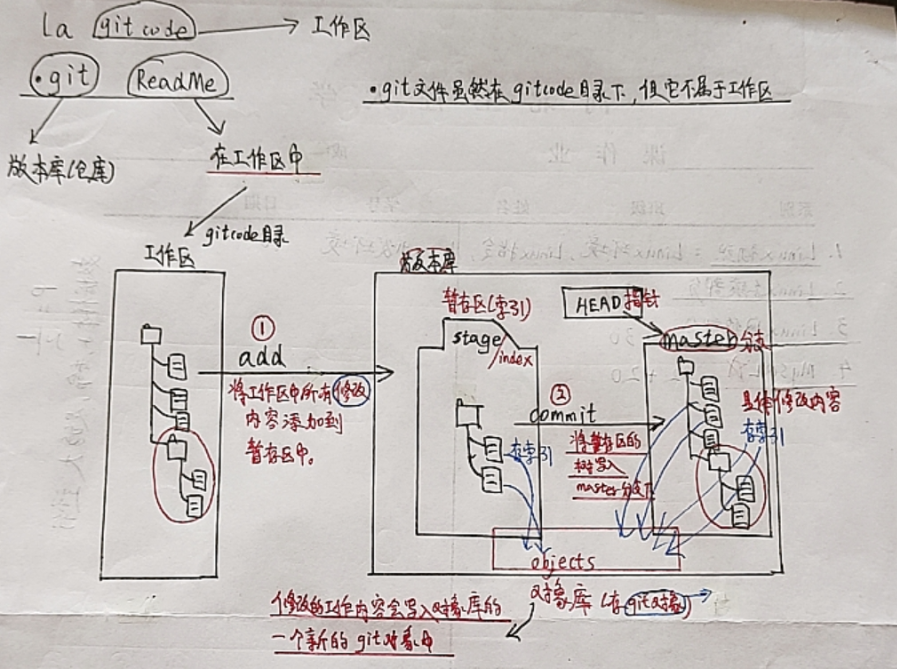 la gitcode → 工作区
.git ReadMe
.git文件虽然在gitcode目录下,但它不属于工作区
版本库(仓库)
在工作区中
gitcode目录
工作区
版本库
暂存区(索引)
HEAD指针
stage/index
master分支
①
add
将工作区中所有修改
内容添加到
暂存区中。
②
commit
将暂存区的
树写入
master分支下
存索引
具体修改内容
存索引
objects
对象库(存git对象)
修改的工作内容会写入对象库的
一个新的git对象中